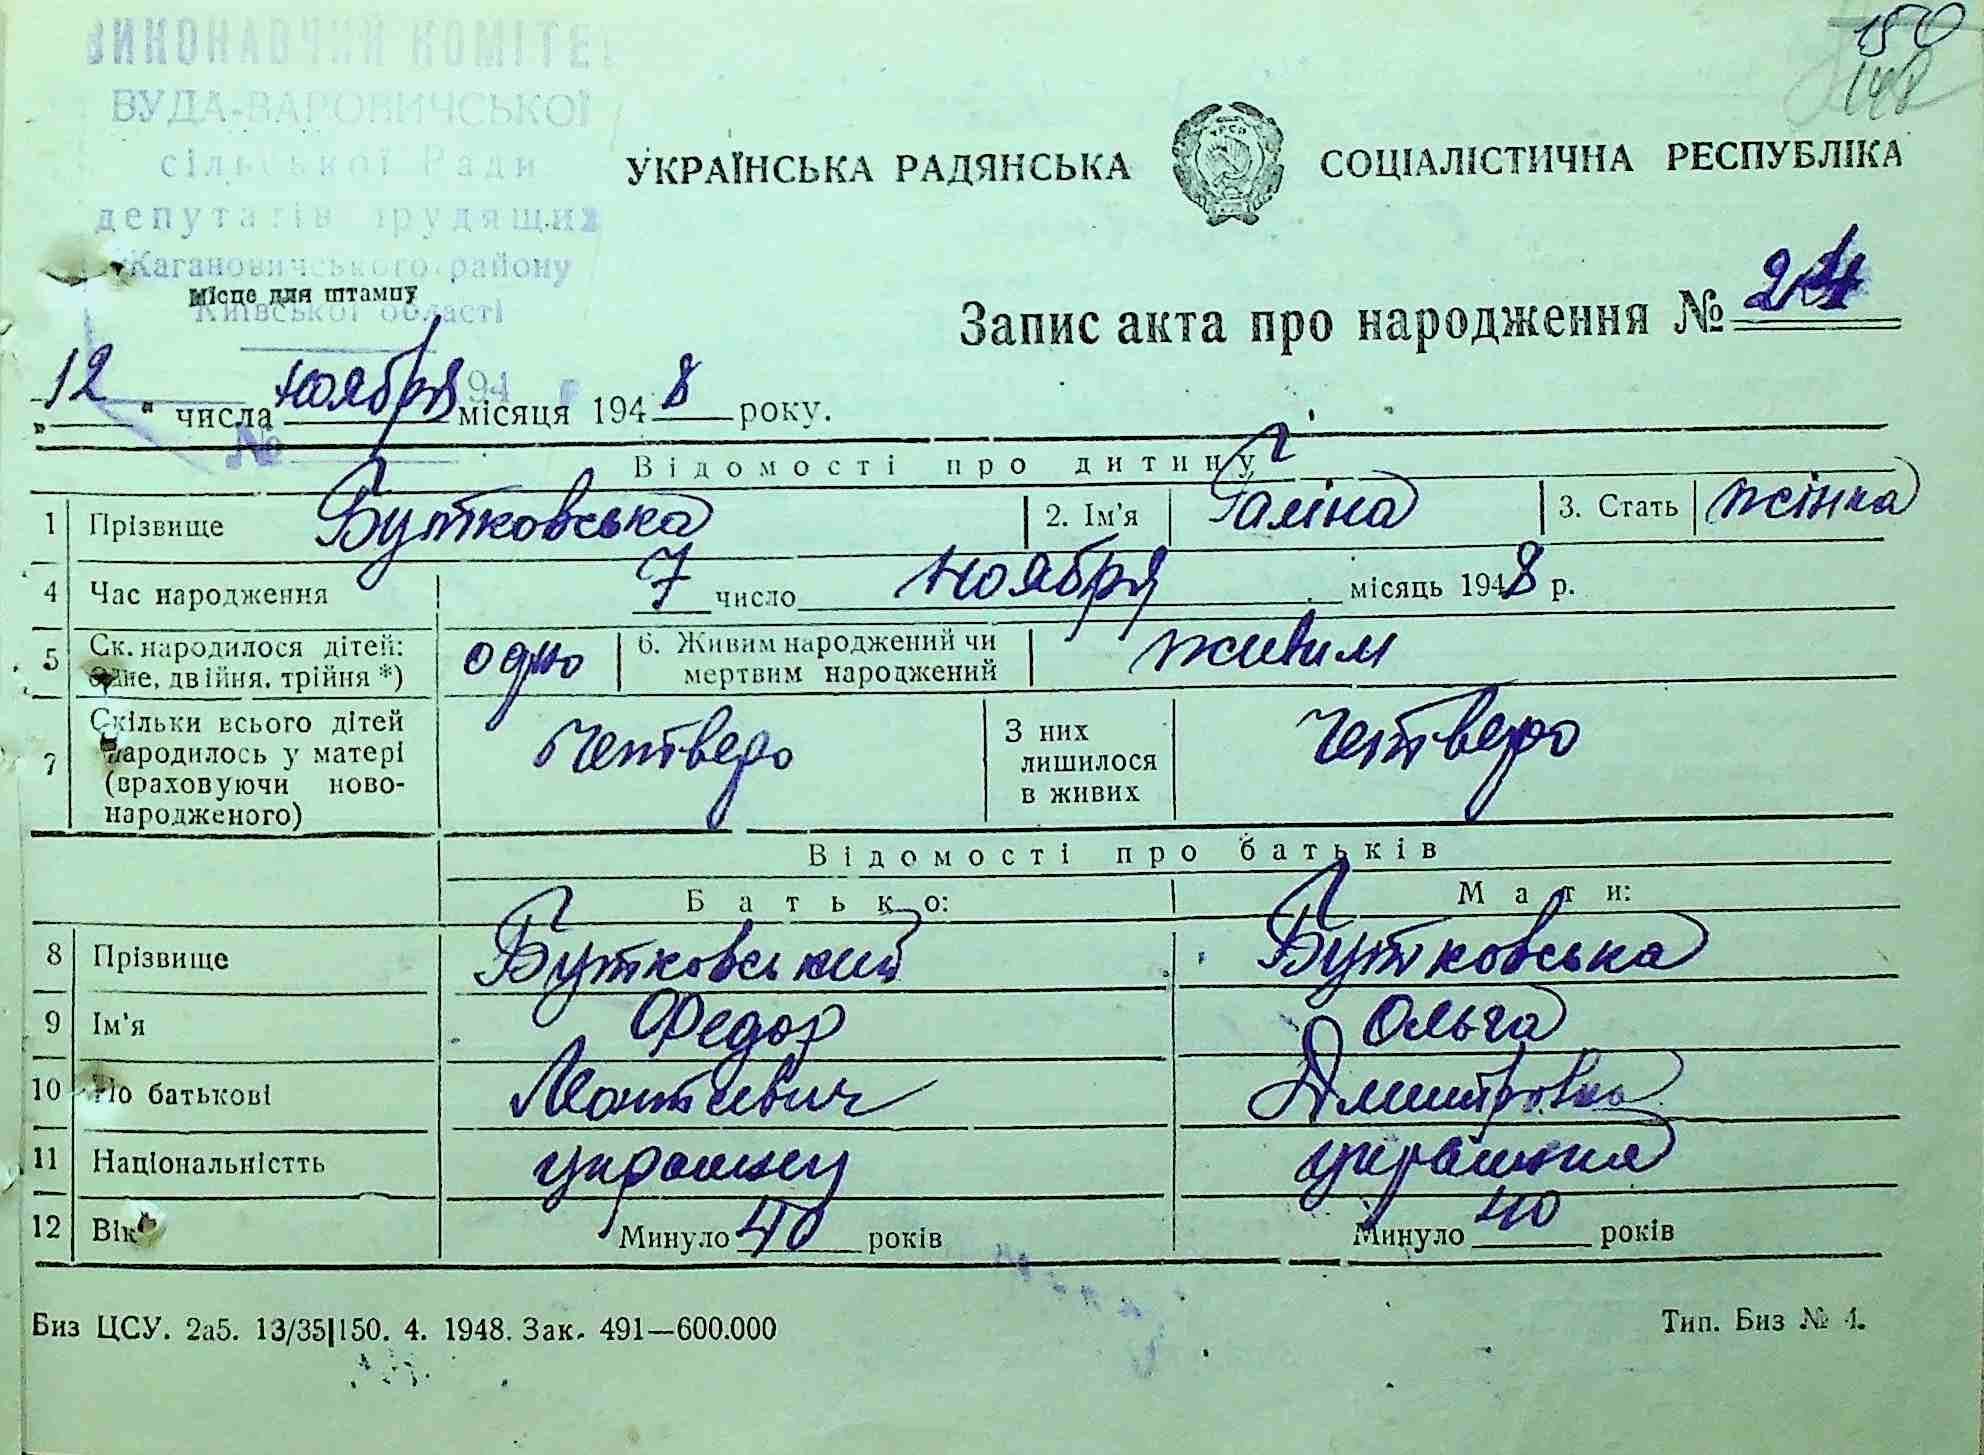 ВИКОНАВЧИЙ КОМІТЕТ
БУДА-ВАРОВИЧСЬКОЇ
сільської Ради
депутатів трудящих
Кагановичського району
Київської області
Місце для штампу
194
№
150
148
УКРАЇНСЬКА РАДЯНСЬКА СОЦІАЛІСТИЧНА РЕСПУБЛІКА
УРСР
Запис акта про народження № 24
„ 12 " числа ноября місяця 1948 року.
Відомості про дитину
1 Прізвище Бутковська 2. Ім'я Галіна 3. Стать жінка
4 Час народження 7 число ноября місяць 1948 р.
5 Ск. народилося дітей: одно 6. Живим народжений чи живим
одне, двійня, трійня *) мертвим народжений
7 Скільки всього дітей народилось у матері (враховуючи ново-народженого) Четверо З них лишилося в живих Четверо
Відомості про батьків
Батько: Мати:
8 Прізвище Бутковський Бутковська
9 Ім'я Федор Ольга
10 По батькові Дмитровна
11 Національністть українец українка
12 Вік Минуло 40 років Минуло 40 років
Биз ЦСУ. 2а5. 13/35|150. 4. 1948. Зак. 491—600.000 Тип. Биз № 4.